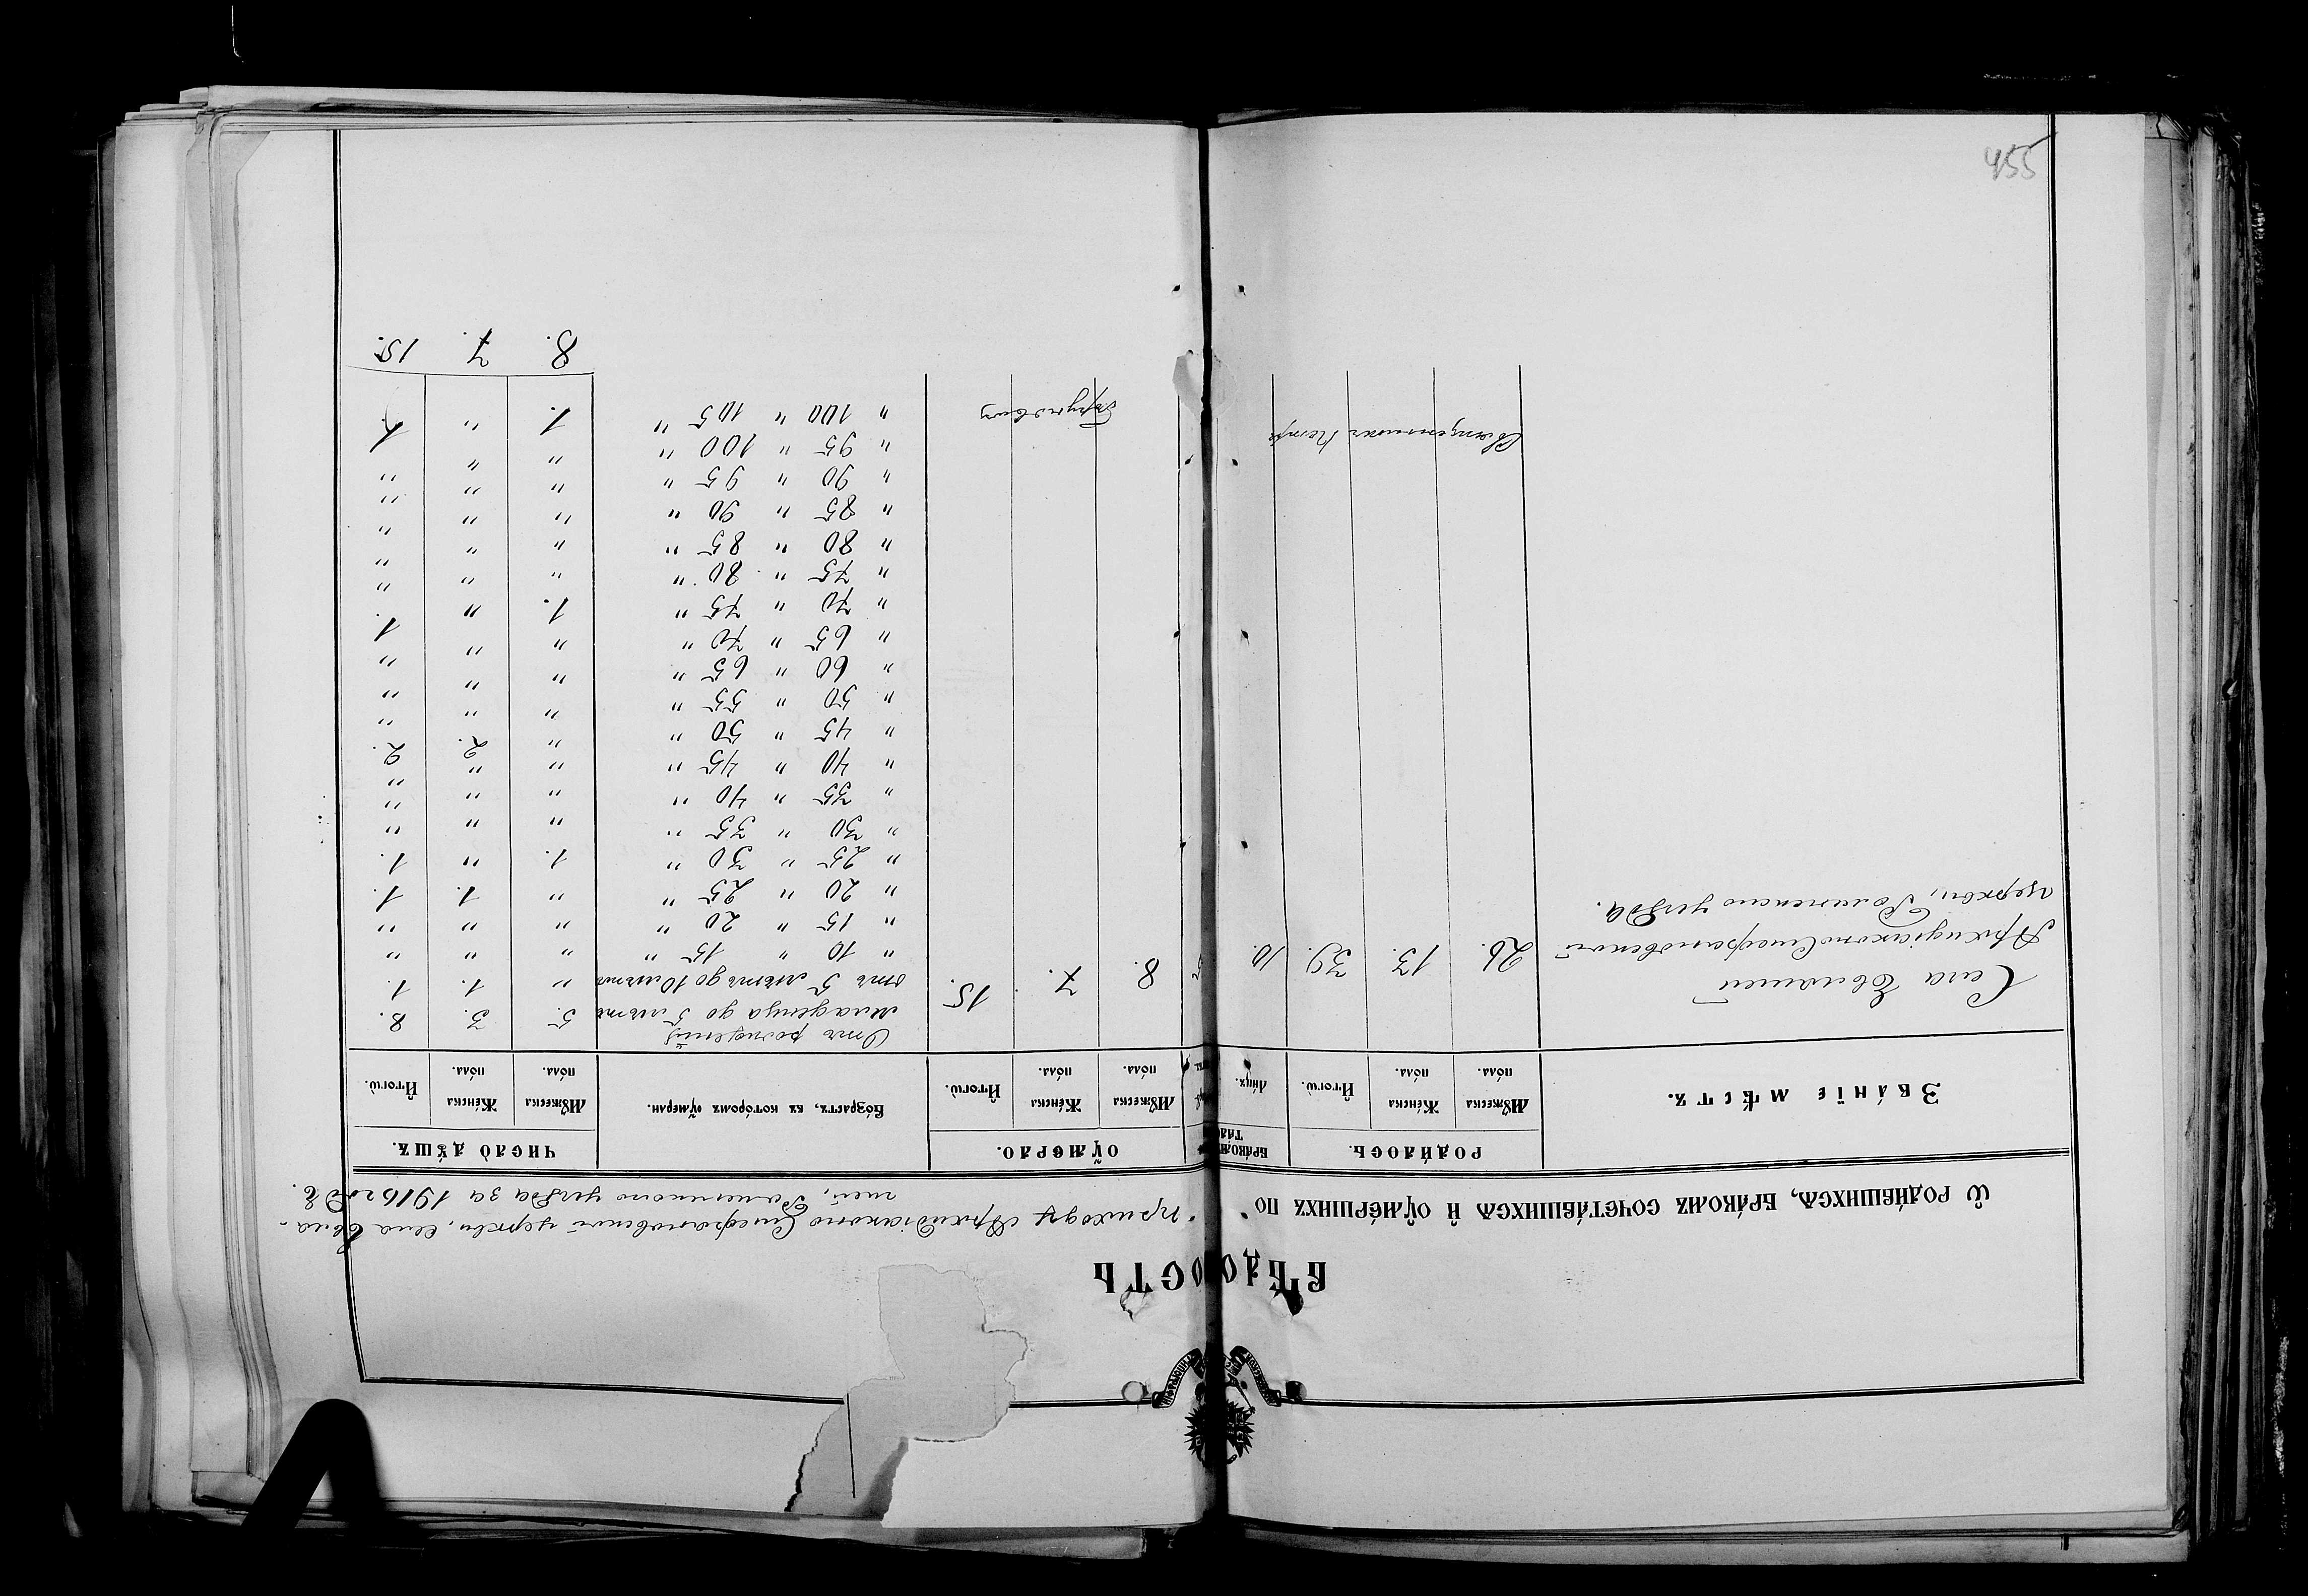 455
ВѢДОМОСТЬ
Ѿ РОДИ́ВШИХСѦ, БРА́КОМЪ СОЧЕТА́ВШИХСѦ И҆ ОУ҆МЕ́РШИХЪ ПО
приходу Архидіаконо Стефановской церкви, села
уѣзда за 1916 годъ.
Зва́нїе мѣ́стъ.
РОДИ́ЛОСЬ.
Мꙋ́жеска по́ла.
Же́нска по́ла.
И҆тогѡ̀.
Ли́цъ.
ОУ҆́МЕРЛО.
Мꙋ́жеска по́ла.
Же́нска по́ла.
И҆тогѡ̀.
Во́зрастъ, въ кото́ромъ оу҆́мерли.
ЧИСЛО̀ ДꙊ́ШЪ.
Мꙋ́жеска по́ла.
Же́нска по́ла.
И҆тогѡ̀.
Села
Архидіаконо Стефановской
церкви, уѣзда.
26. 13. 39. 10. 8. 7. 15.
Отъ рожденія
младенца до 5 лѣтъ 5. 3. 8.
отъ 5 лѣтъ до 10 лѣтъ " 1. 1.
" 10 " 15 " " " "
" 15 " 20 " " " "
" 20 " 25 " " 1. 1.
" 25 " 30 " 1. " 1.
" 30 " 35 " " " "
" 35 " 40 " " " "
" 40 " 45 " " " "
" 45 " 50 " " 2. 2.
" 50 " 55 " " " "
" 60 " 65 " " " "
" 65 " 70 " " " "
" 70 " 75 " 1. " 1.
" 75 " 80 " " " "
" 80 " 85 " " " "
" 85 " 90 " " " "
" 90 " 95 " " " "
" 95 " 100 " " " "
" 100 " 105 " 1. " 1.
8. 7. 15.
Священникъ Петръ